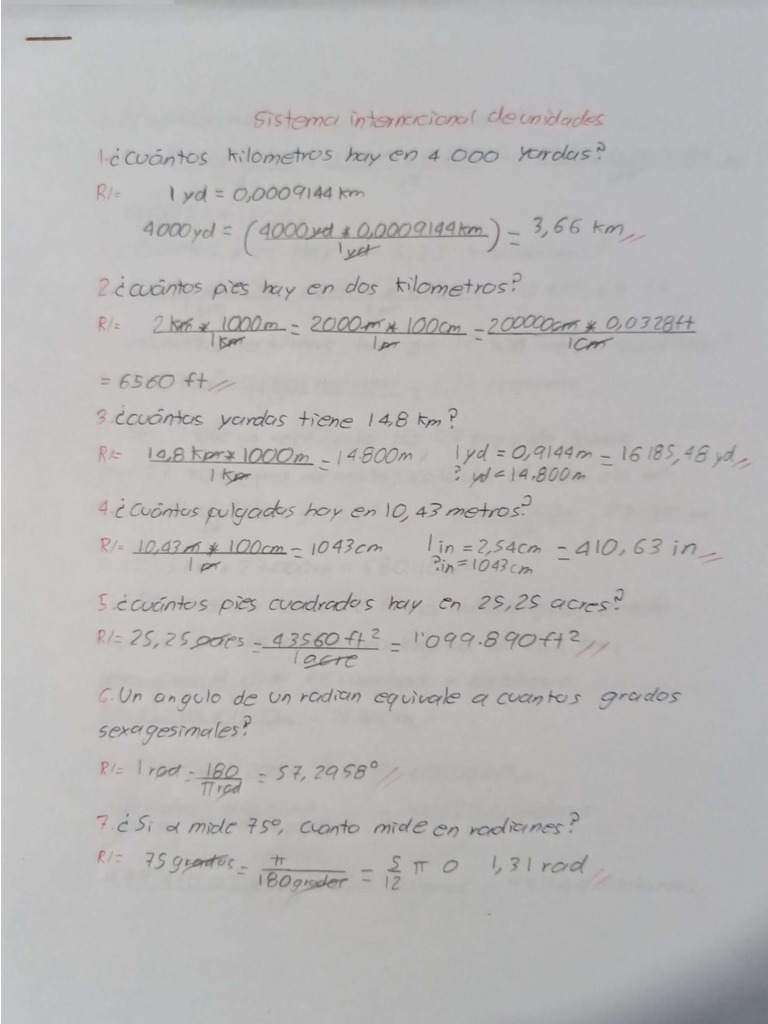 Sistema internacional de unidades
1.¿cuántos kilometros hay en 4 000 yardas?
R/= 1 yd = 0,0009144 km
4000 yd = (4000 yd * 0,0009144 km / 1 yd) = 3,66 km //
2.¿cuántos pies hay en dos kilometros?
R/= 2 km * 1000m / 1 km = 2000 m * 100cm / 1 m = 200000cm * 0,0328 ft / 1 cm
= 6560 ft //
3.¿cuántas yardas tiene 14,8 km?
R/= 14,8 km * 1000m / 1 km = 14.800m 1 yd = 0,9144 m = 16185,48 yd //
? yd = 14.800 m
4.¿cuántas pulgadas hay en 10,43 metros?
R/= 10,43 m * 100cm / 1 m = 1043 cm 1 in = 2,54cm = 410,63 in //
? in = 1043 cm
5.¿cuántos pies cuadrados hay en 25,25 acres?
R/= 25,25 acres = 43560 ft² / 1 acre = 1'099.890 ft² //
6.Un angulo de un radian equivale a cuantos grados
sexagesimales?
R/= 1 rad = 180 / π rad = 57,2958° //
7.¿Si α mide 75°, cuanto mide en radianes?
R/= 75 grados = π / 180 grados = 5/12 π o 1,31 rad //